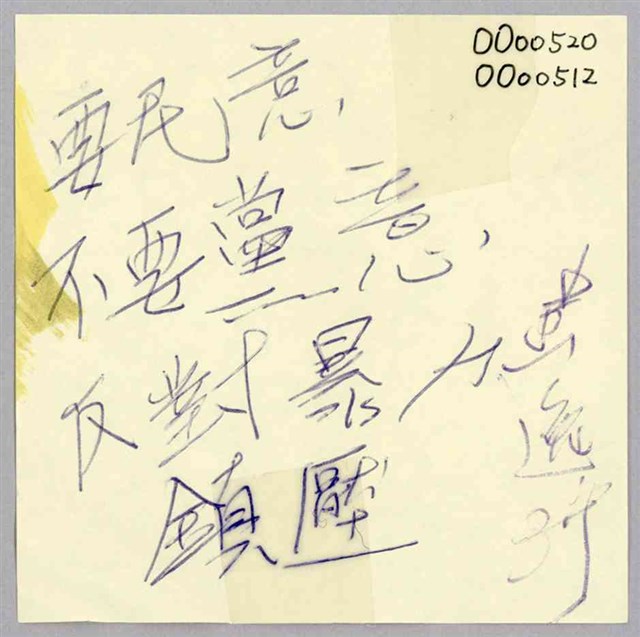 0000520
0000512
要民意、
不要黨意、
反對暴力
鎮壓